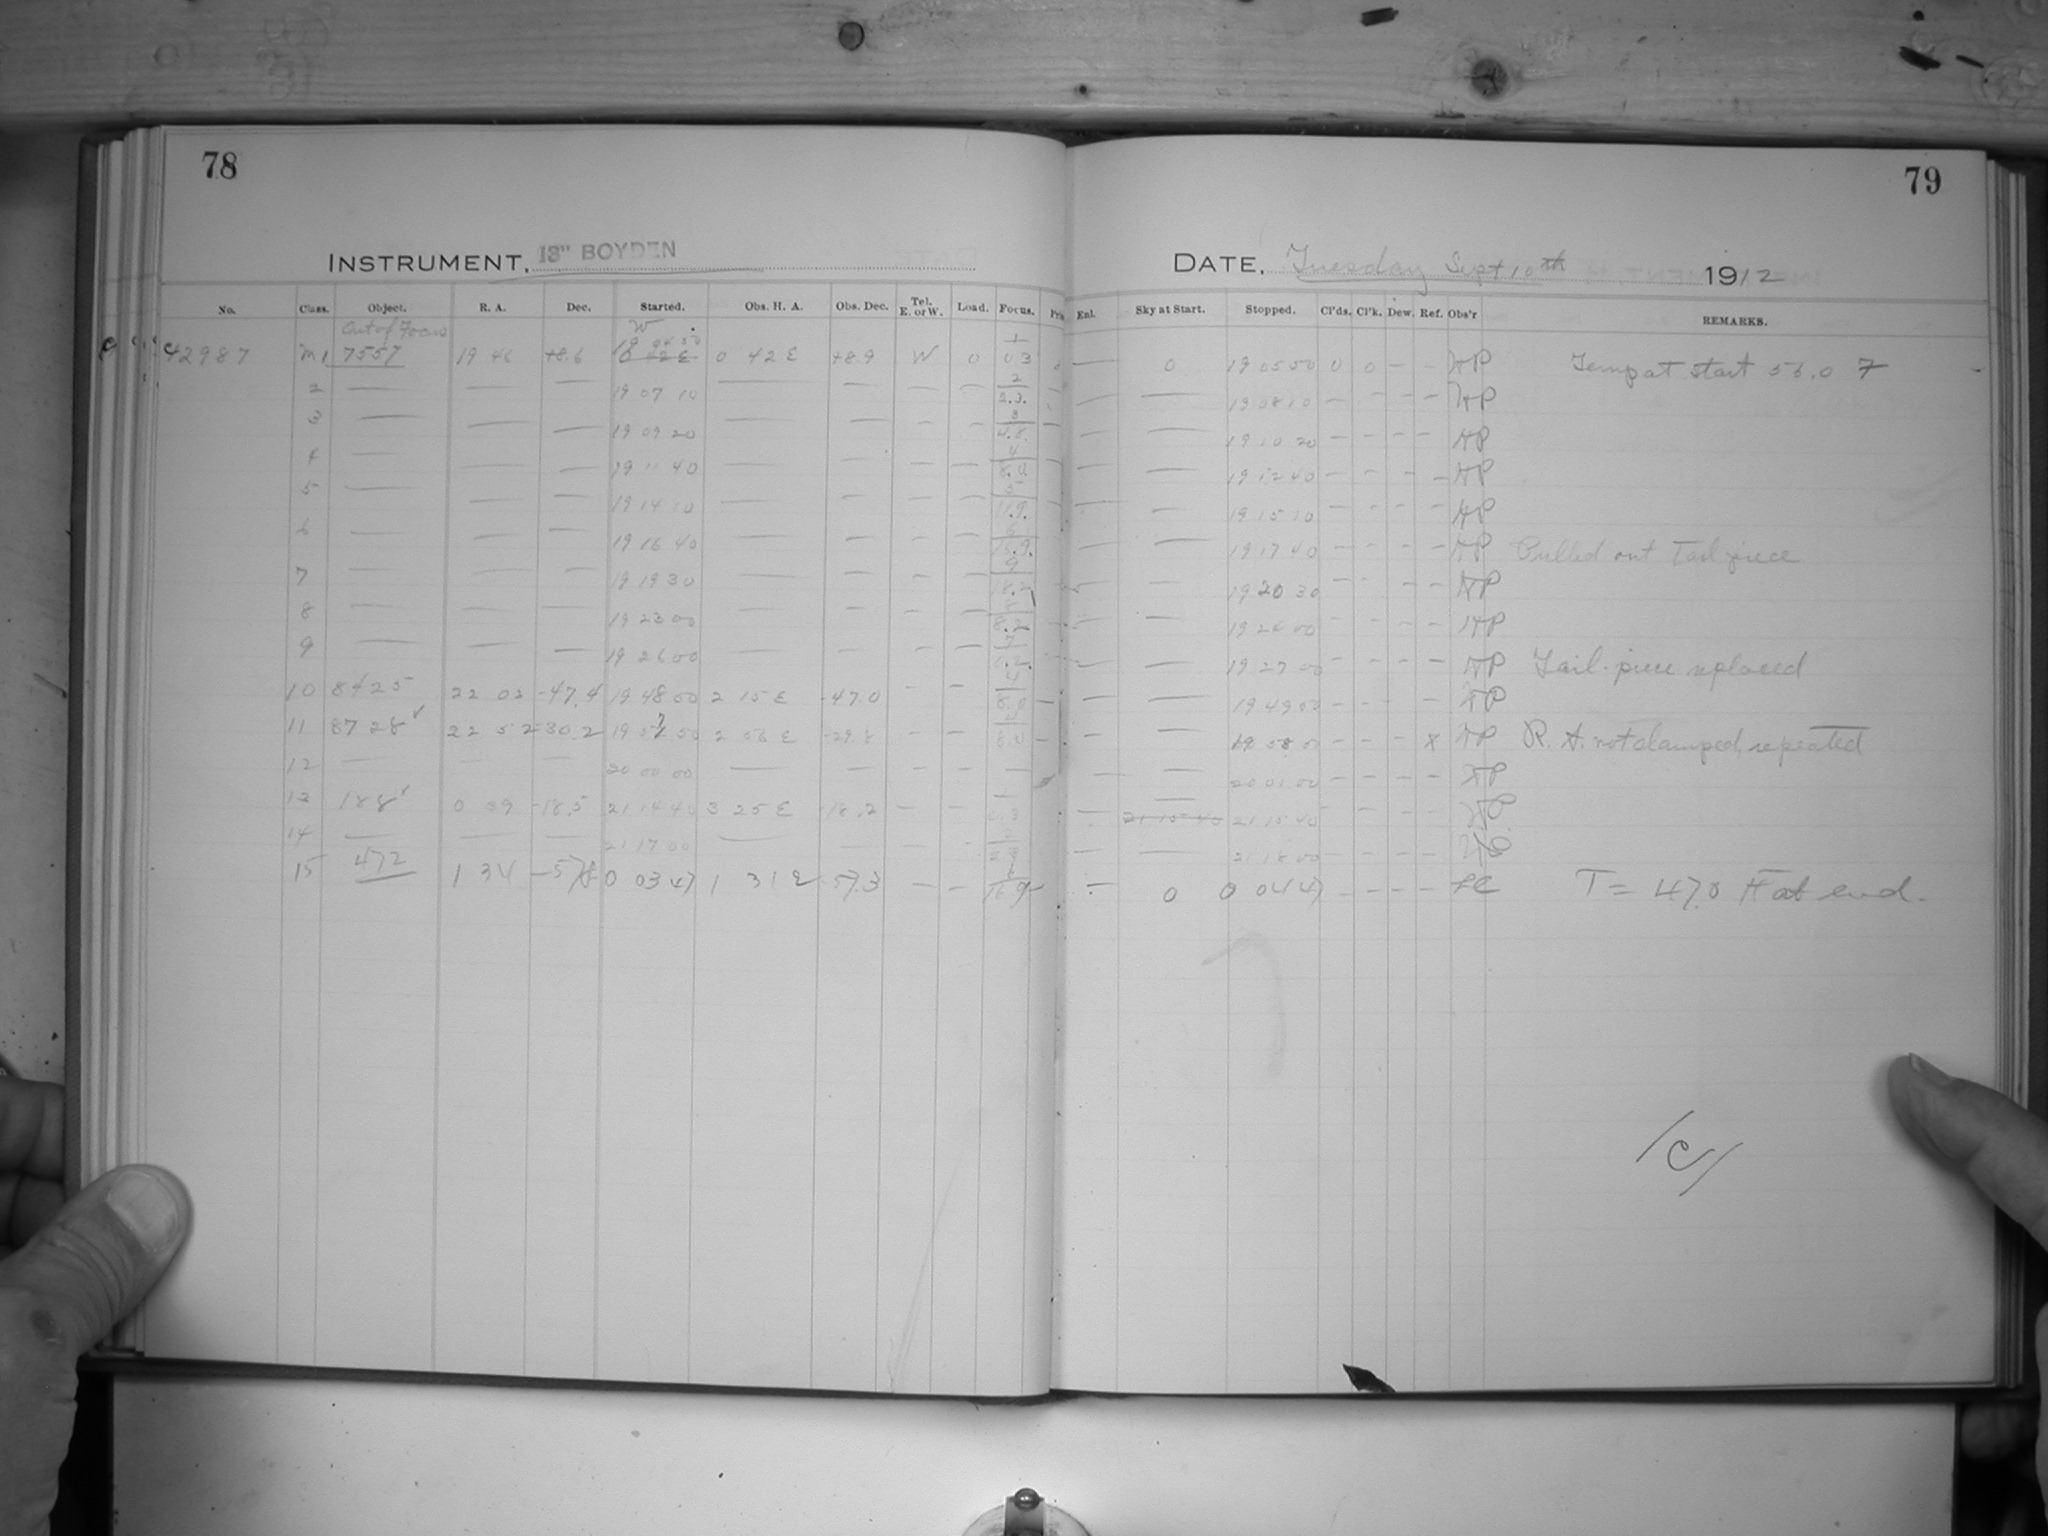 78
79
INSTRUMENT, 13" BOYDEN
DATE, Tuesday Sept 10th 1912
No. Class. Object. R. A. Dec. Started. Obs. H. A. Obs. Dec. Tel. E. or W. Load. Focus. Enl. Sky at Start. Stopped. Cl'ds. Cl'k. Dew. Ref. Obs'r REMARKS.
Out of Focus
C 42987 M 1 7557 19 46 +8.6 19 04 50 0 42 E +8.9 W 0 0 19 05 50 0 0 - - Temp at start 56.0 F
2 — — — 19 07 10 — — — — 2.3. — — 19 08 10 — — — —
3 — — — 19 09 20 — — — — — — 19 10 20 — — — —
4 — — — 19 11 40 — — — — — — 19 12 40 — — — —
5 — — — 19 14 10 — — — — 11.9. — — 19 15 10 — — — —
6 — — — 19 16 40 — — — — — — 19 17 40 — — — — Pulled out Tail piece
7 — — — 19 19 30 — — — — — — 19 20 30 — — — —
8 — — — 19 23 00 — — — — 8.2 — — 19 24 00 — — — —
9 — — — 19 26 00 — — — — — — 19 27 00 — — — — Tail-piece replaced
10 8425 22 02 -47.4 19 48 00 2 15 E -47.0 — — — — 19 49 00 — — —
11 8728 22 52 -30.2 19 57 50 2 56 E -29.8 — — — — 19 58 — — — X R. A. not clamped, repeated
12 — — — 20 00 00 — — — — — — — 20 01 00 — — — —
13 188 0 09 -18.5 21 14 40 3 25 E -18.2 — — — 21 15 40 21 15 40 — — — —
14 — — — 21 17 00 — — — — — 21 18 00 — — — —
15 472 1 34 -57.8 0 03 47 1 31 E 57.3 — — 16.9 — 0 0 04 47 — — — — T = 47.0 F at end.
/C/